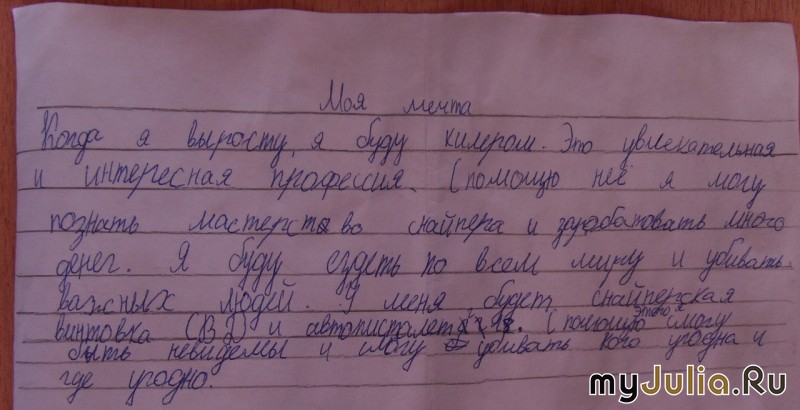 Моя мечта
Когда я выросту, я буду килером. Это увлекательная
и интересная профессия. С помощю неё я могу
познать мастерство снайпера и зарабатовать много
денег. Я буду ездеть по всем миру и убивать
важных людей. У меня будет снайперская
винтовка (В2) и автопистолет. С помощю этого я смогу
быть невидемы и смогу убивать кого угодна и
где угодно.
myJulia.Ru